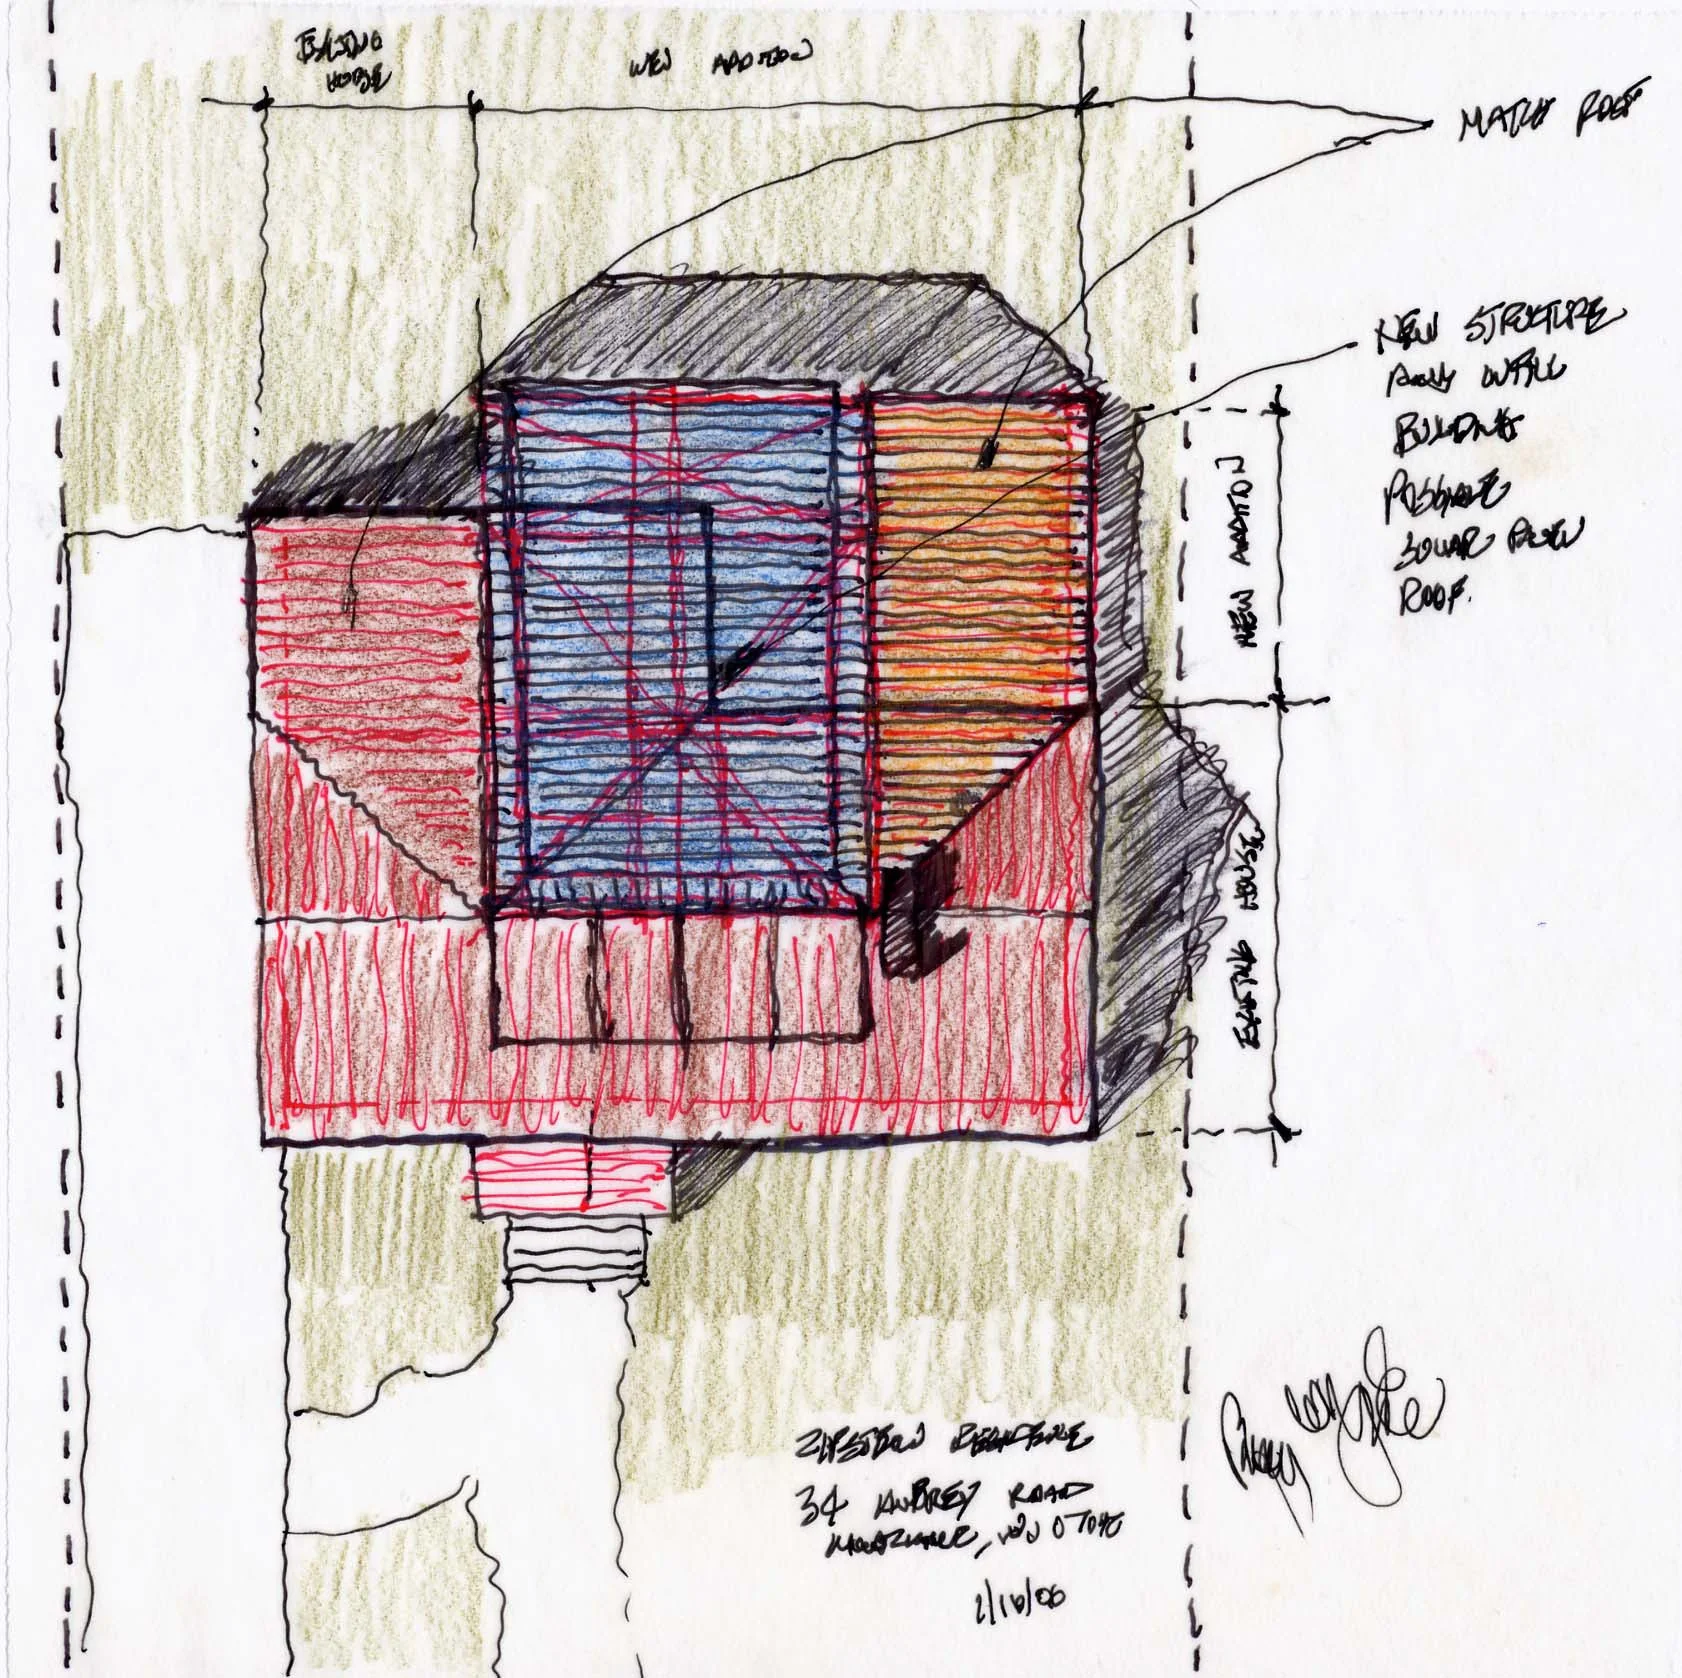 EXISTING
HOUSE
NEW ADDITION
MATCH ROOF
NEW STRUCTURE
INFILL
BUILDING
POSSIBLE
SOLAR PANEL
ROOF.
NEW ADDITION
EXISTING HOUSE
RESIDENCE
34 AUBREY ROAD
2/16/06